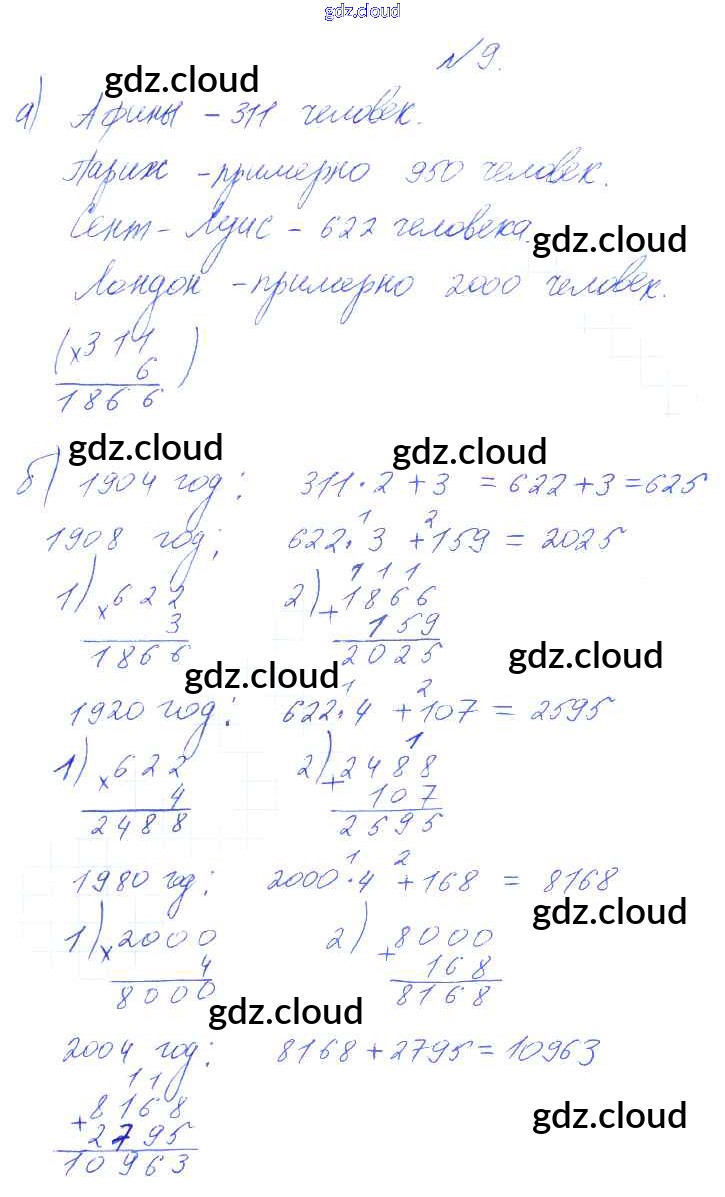 gdz.cloud
№ 9.
gdz.cloud
а) Афины - 311 человек.
Париж - примерно 950 человек.
Сент-Луис - 622 человека.
gdz.cloud
Лондон - примерно 2000 человек.
( × 311
6 )
1866
gdz.cloud gdz.cloud
б) 1904 год: 311 · 2 + 3 = 622 + 3 = 625
1 2
1908 год: 622 · 3 + 159 = 2025
1) × 622 2) + 1866
1 1 1
3 159
1866 2025
gdz.cloud gdz.cloud
1 2
1920 год: 622 · 4 + 107 = 2595
1
1) × 622 2) + 2488
4 107
2488 2595
1 2
1980 год: 2000 · 4 + 168 = 8168
gdz.cloud
1) × 2000 2) + 8000
4 168
8000 8168
gdz.cloud
2004 год: 8168 + 2795 = 10963
1 1
+ 8168
gdz.cloud
2795
10963